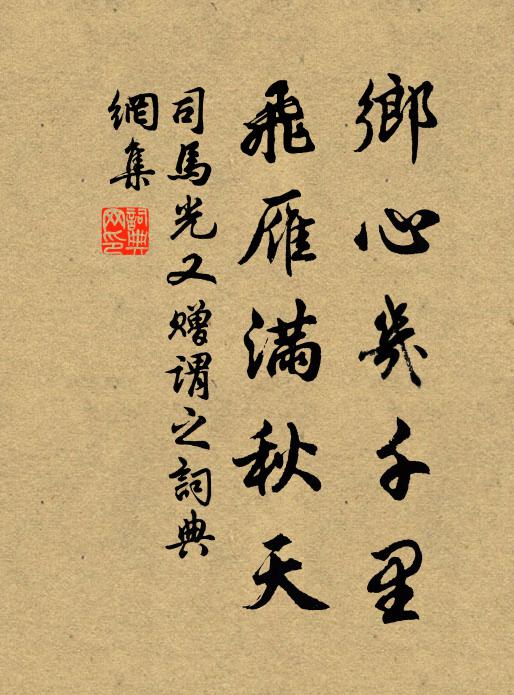 鄉心幾千里
飛雁滿秋天
司馬光又贈謂之詞典
網集
詞典
网印